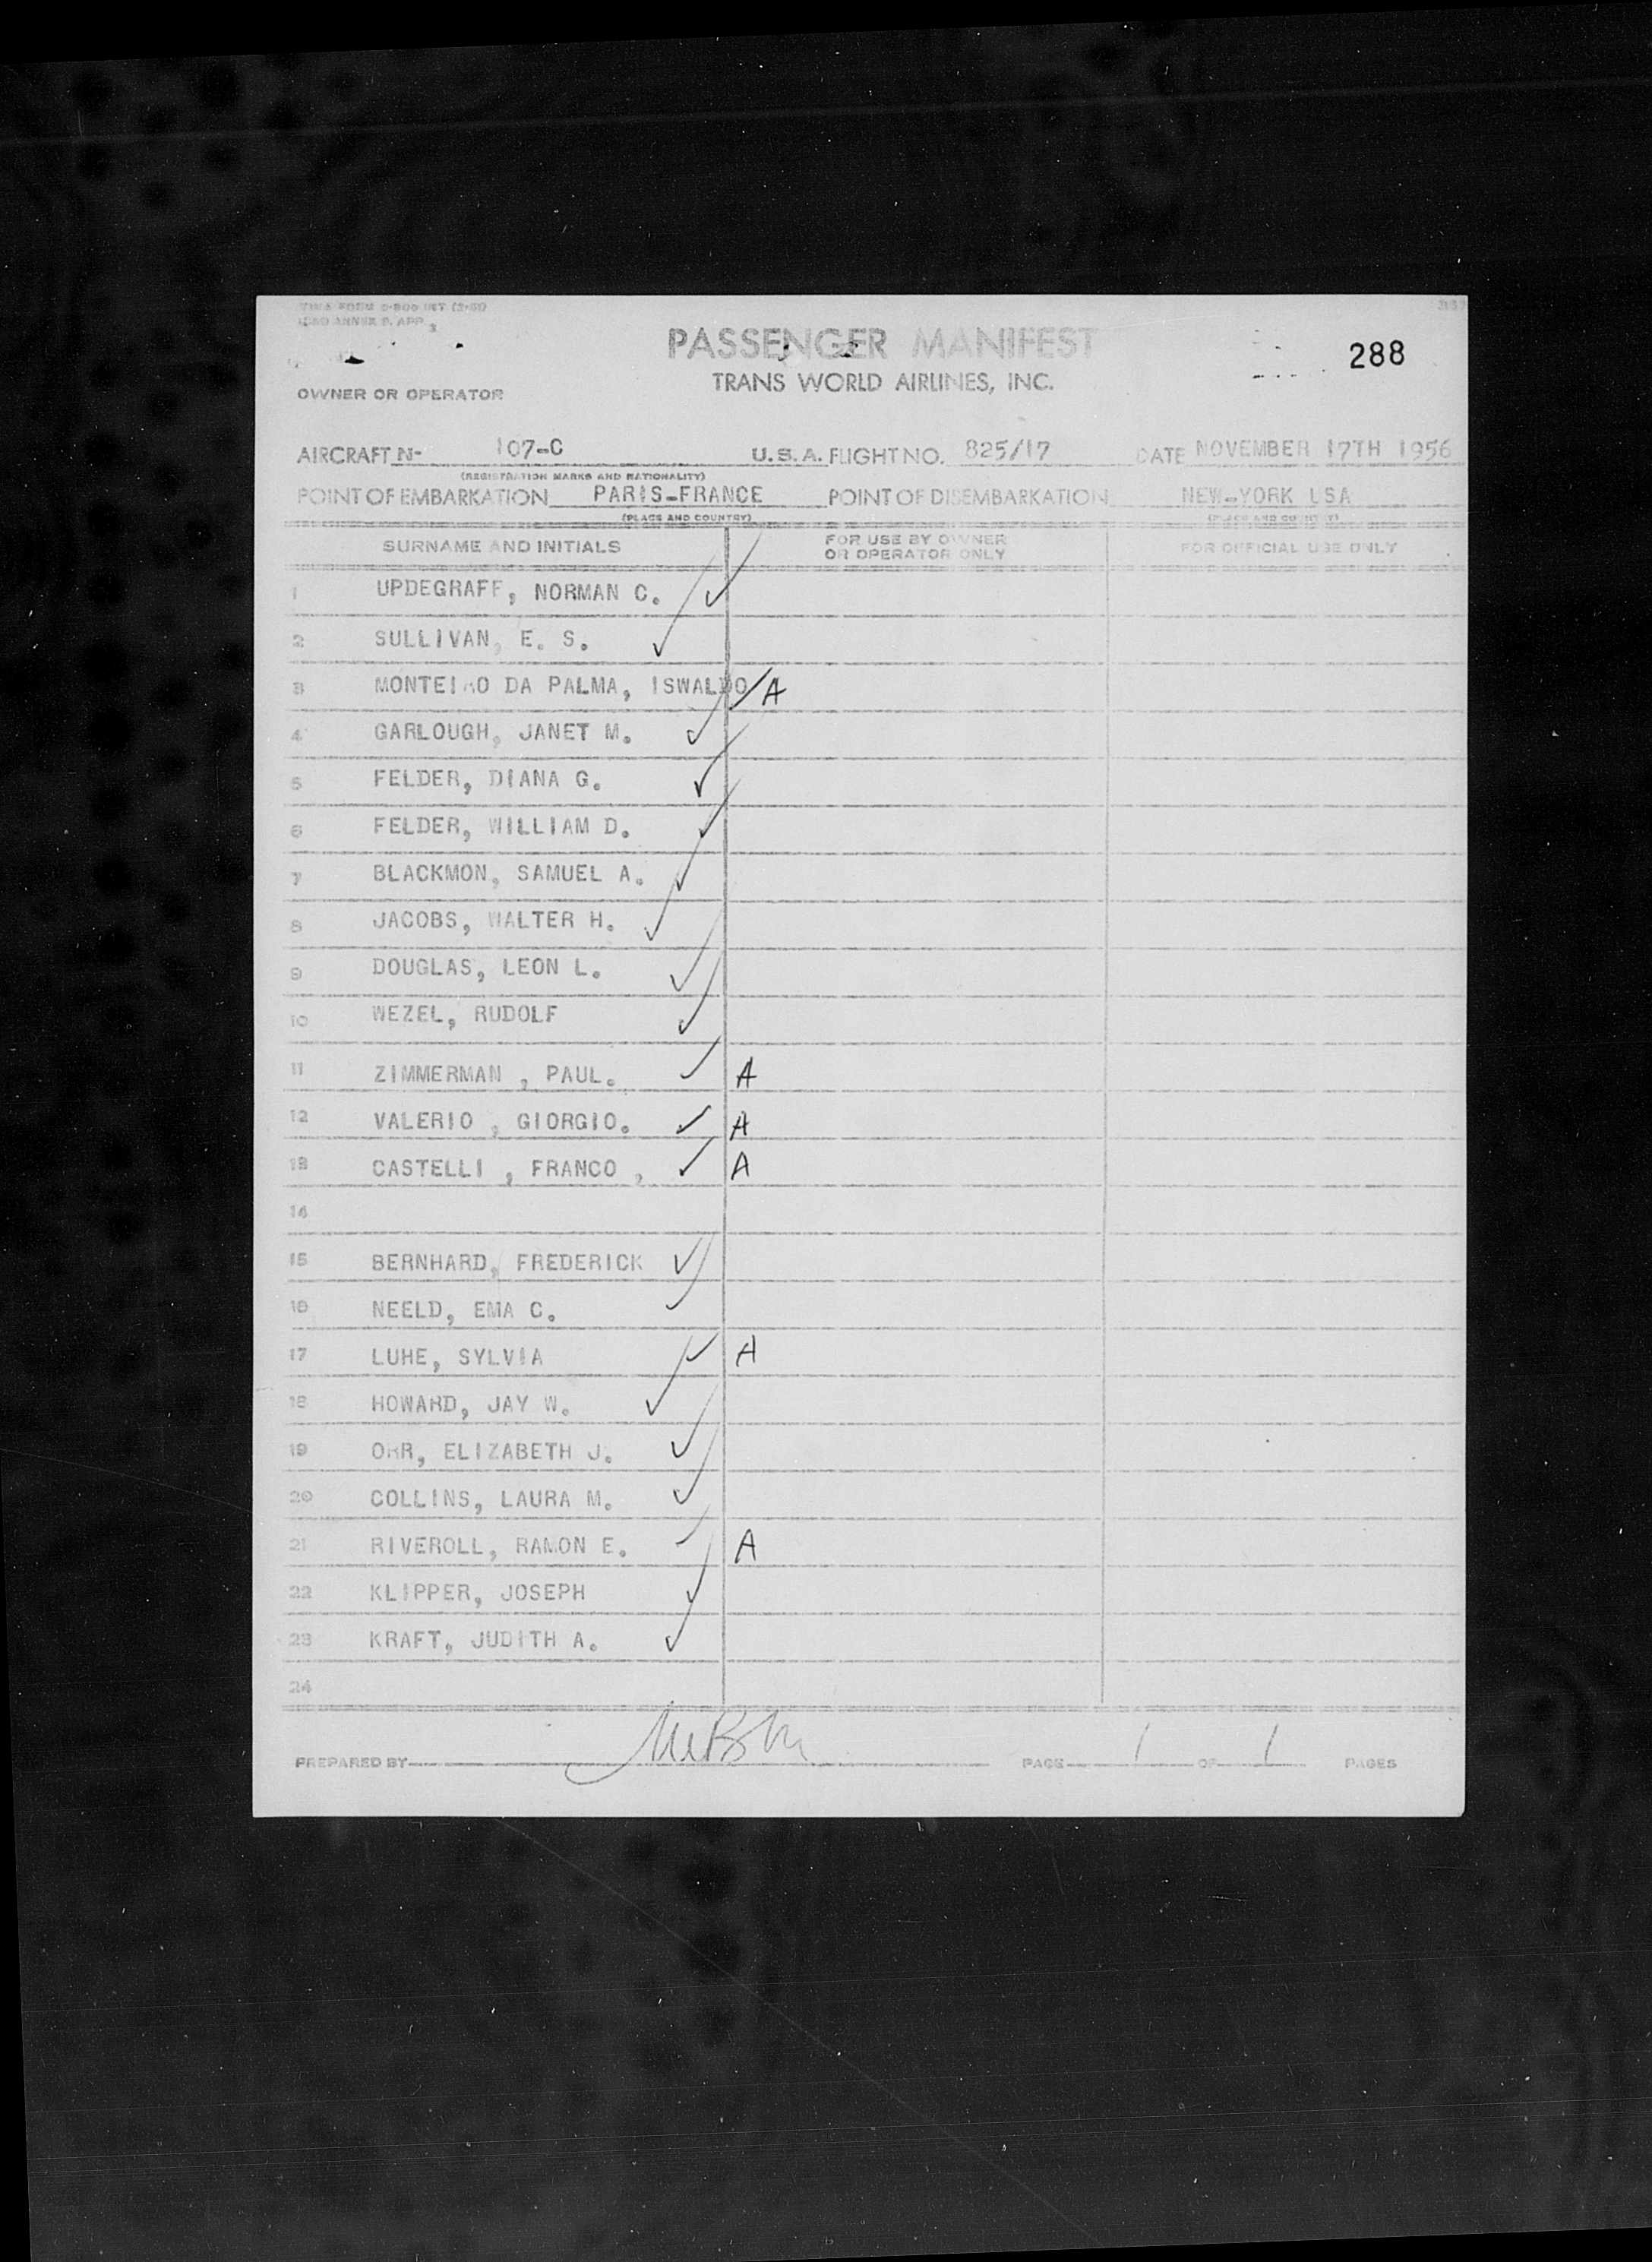 288
PASSENGER MANIFEST
TRANS WORLD AIRLINES, INC.
OWNER OR OPERATOR
AIRCRAFT N- 107-C U.S.A. FLIGHT NO. 825/17 DATE NOVEMBER 17TH 1956
(REGISTRATION MARKS AND NATIONALITY)
POINT OF EMBARKATION PARIS-FRANCE POINT OF DISEMBARKATION NEW-YORK USA
(PLACE AND COUNTRY) (PLACE AND COUNTRY)
SURNAME AND INITIALS FOR USE BY OWNER OR OPERATOR ONLY FOR OFFICIAL USE ONLY
1 UPDEGRAFF, NORMAN C. ✓
2 SULLIVAN, E. S. ✓
3 MONTEIRO DA PALMA, ISWALDO / A
4 GARLOUGH, JANET M. ✓
5 FELDER, DIANA G. ✓
6 FELDER, WILLIAM D. ✓
7 BLACKMON, SAMUEL A. ✓
8 JACOBS, WALTER H. ✓
9 DOUGLAS, LEON L. ✓
10 WEZEL, RUDOLF ✓
11 ZIMMERMAN , PAUL. ✓ A
12 VALERIO , GIORGIO. ✓ A
13 CASTELLI , FRANCO , ✓ A
14
15 BERNHARD, FREDERICK ✓
16 NEELD, EMA C. ✓
17 LUHE, SYLVIA ✓ A
18 HOWARD, JAY W. ✓
19 ORR, ELIZABETH J. ✓
20 COLLINS, LAURA M. ✓
21 RIVEROLL, RAMON E. ✓ A
22 KLIPPER, JOSEPH ✓
23 KRAFT, JUDITH A. ✓
24
PREPARED BY PAGE 1 OF 1 PAGES